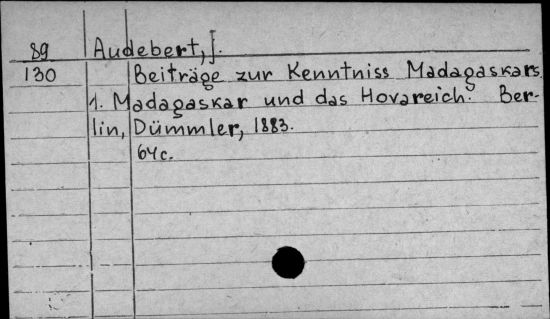 89 Audebert, J.
130 Beiträge zur Kenntniss Madagaskars.
1. Madagaskar und das Hovareich. Ber-
lin, Dümmler, 1883.
64c.